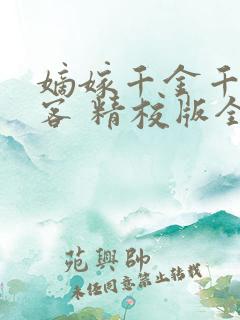 嫡嫁千金 千
客 精校版全
苑興帥
未经同意禁止转载